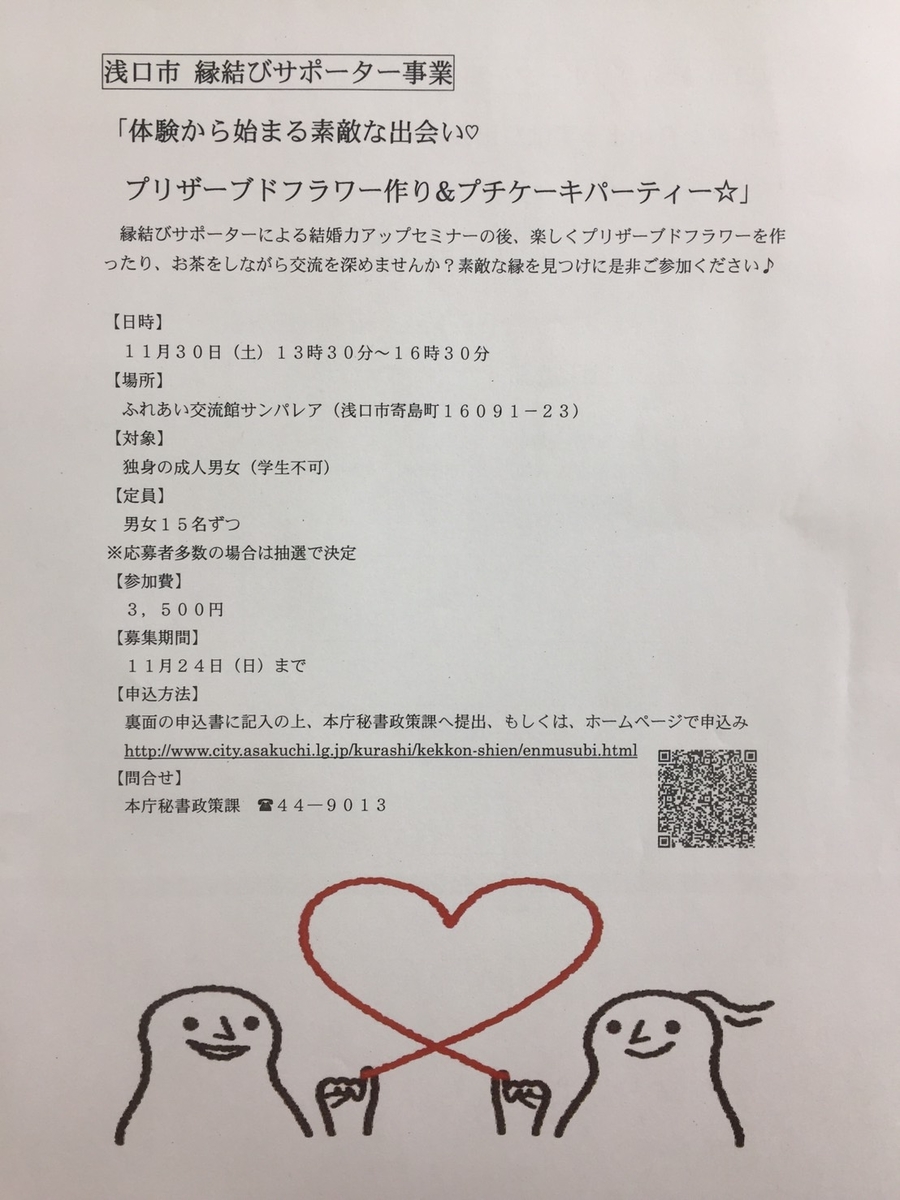 浅口市 縁結びサポーター事業
「体験から始まる素敵な出会い♡
プリザーブドフラワー作り&プチケーキパーティー☆」
縁結びサポーターによる結婚力アップセミナーの後、楽しくプリザーブドフラワーを作
ったり、お茶をしながら交流を深めませんか？素敵な縁を見つけに是非ご参加ください♪
【日時】
１１月３０日（土）１３時３０分～１６時３０分
【場所】
ふれあい交流館サンパレア（浅口市寄島町１６０９１－２３）
【対象】
独身の成人男女（学生不可）
【定員】
男女１５名ずつ
※応募者多数の場合は抽選で決定
【参加費】
３，５００円
【募集期間】
１１月２４日（日）まで
【申込方法】
裏面の申込書に記入の上、本庁秘書政策課へ提出、もしくは、ホームページで申込み
http://www.city.asakuchi.lg.jp/kurashi/kekkon-shien/enmusubi.html
【問合せ】
本庁秘書政策課　☎４４－９０１３